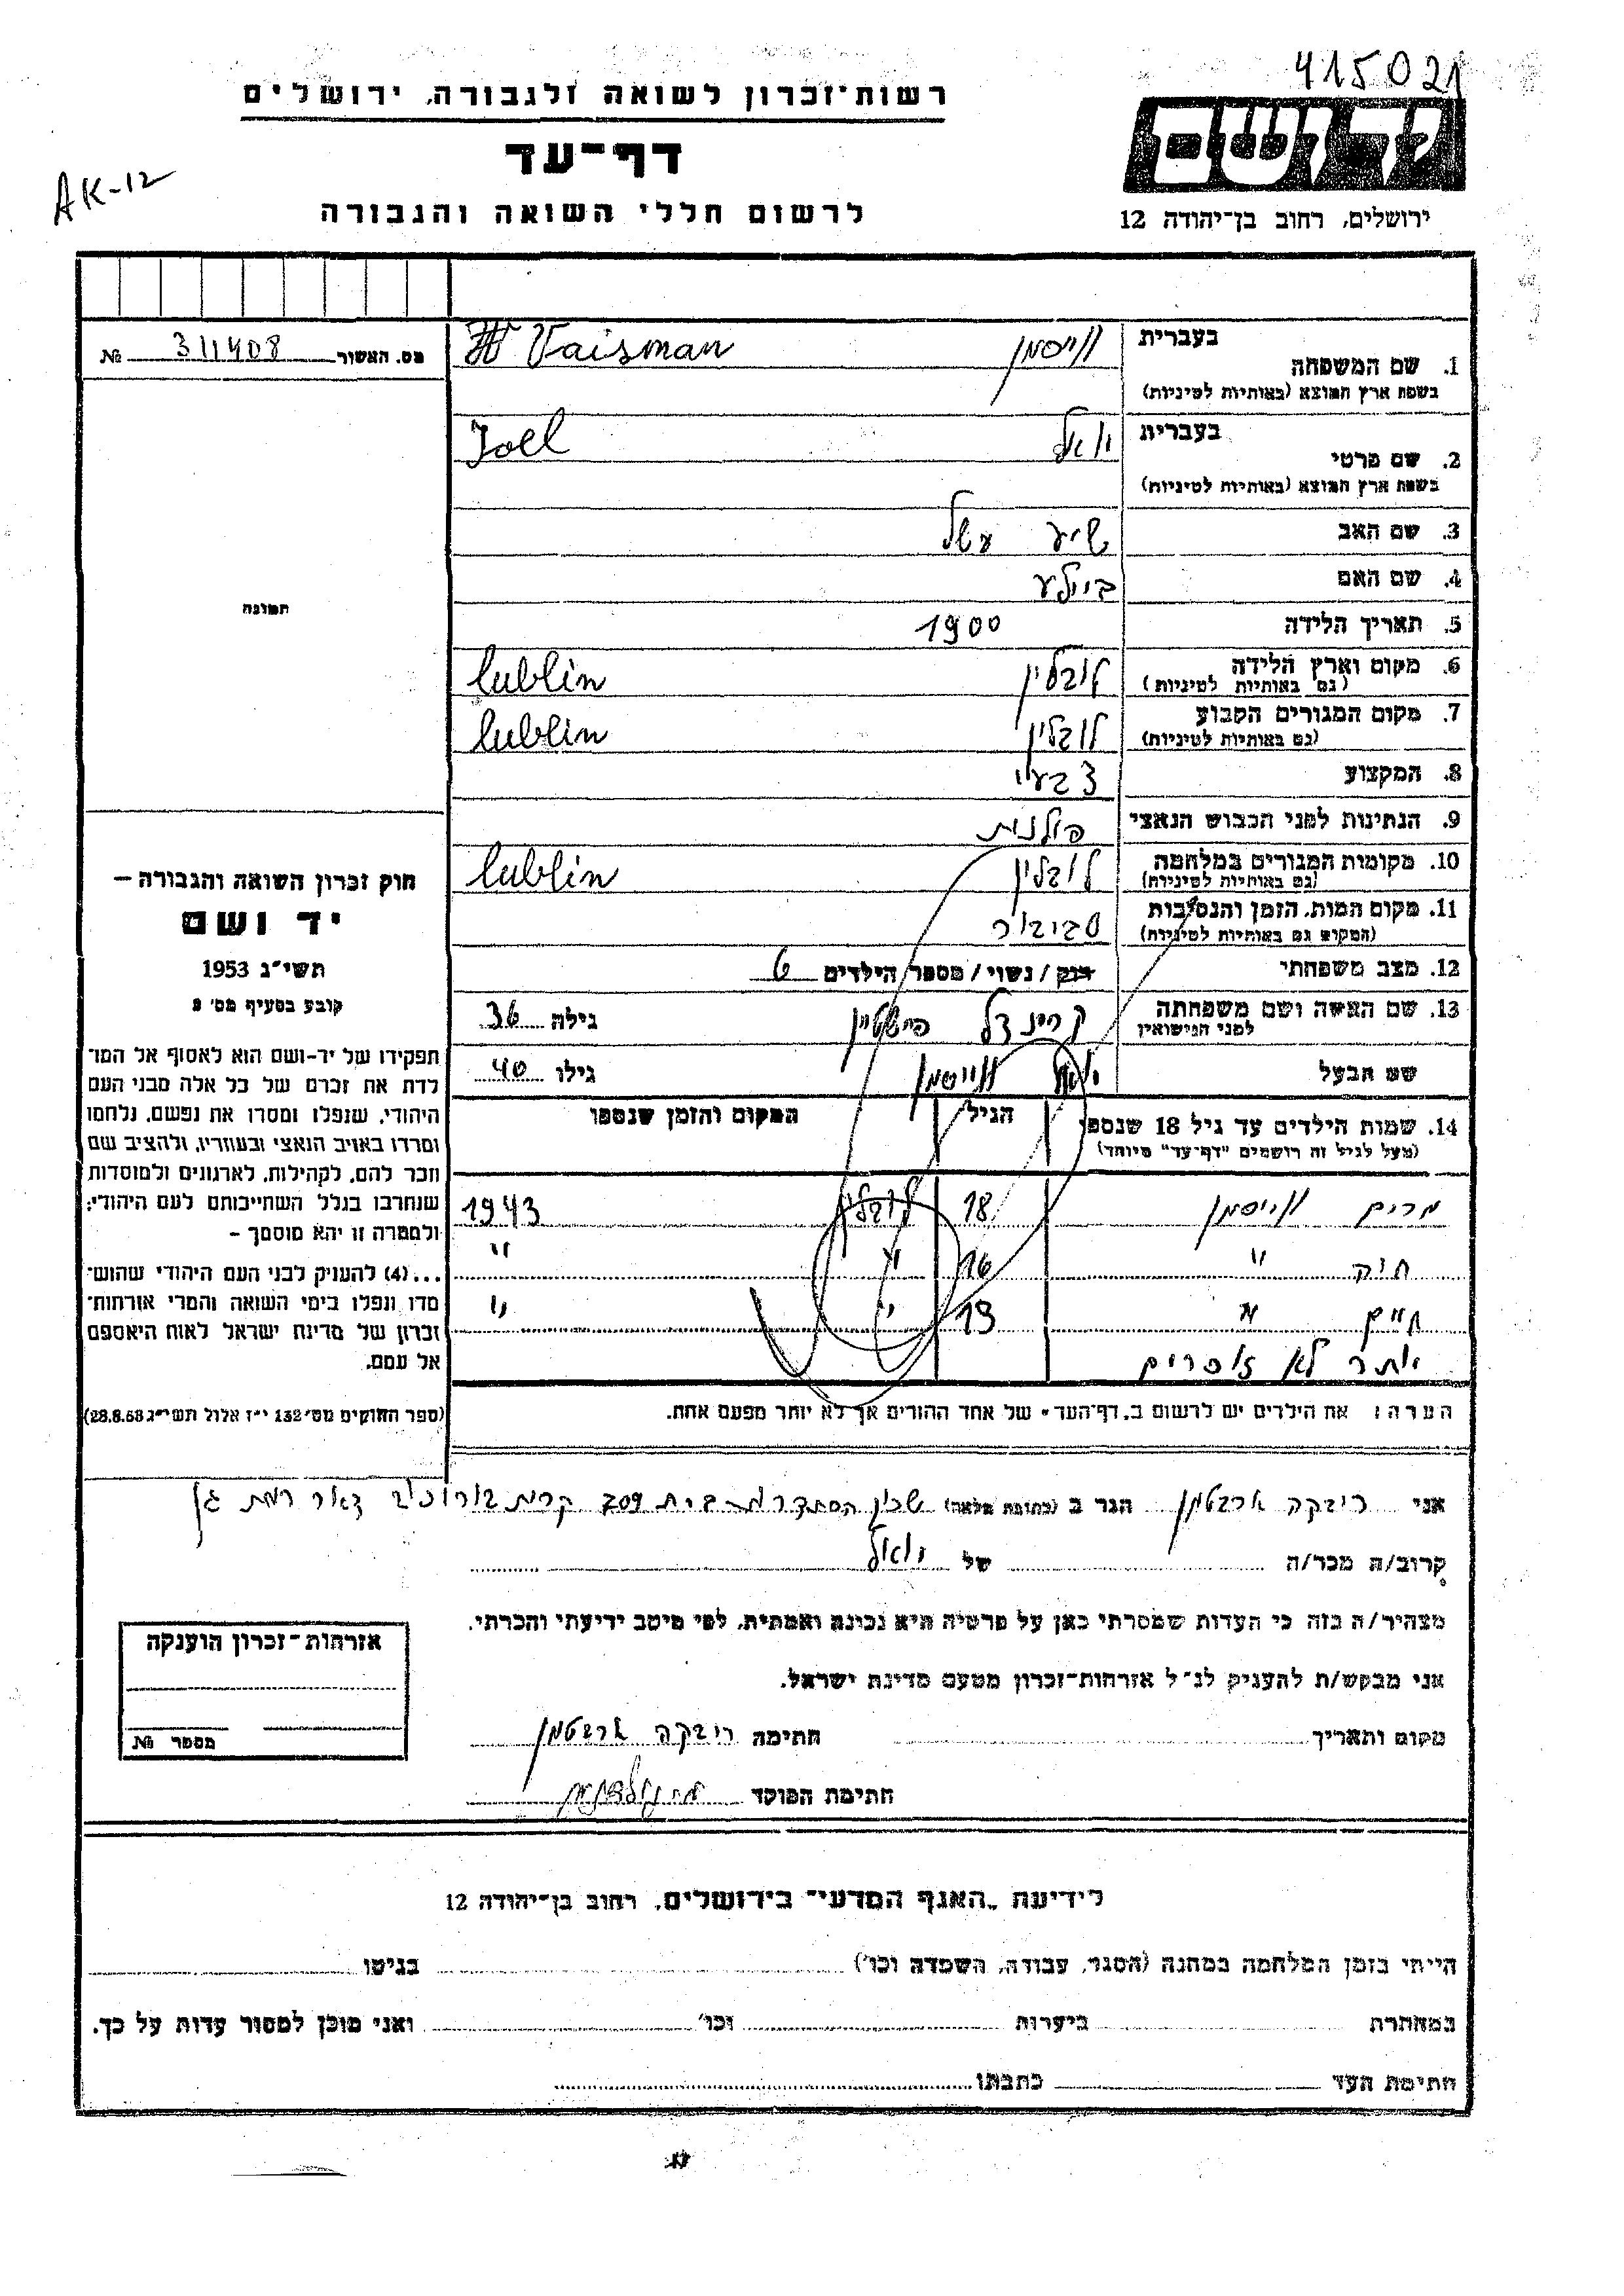 415021
רשות־זכרון לשואה ולגבורה, ירושלים
דף־עד
AK-12
לרשום חללי השואה והגבורה
ירושלים, רחוב בן־יהודה 12
מס. האשור 311408 №
בעברית
1. שם המשפחה
בשפת ארץ המוצא (באותיות לטיניות)
וייסמן Vaisman
בעברית
2. שם פרטי
בשפת ארץ המוצא (באותיות לטיניות)
יואל Joel
3. שם האב שיע
4. שם האם ביילע
5. תאריך הלידה 1900
6. מקום וארץ הלידה לובלין lublin
(גם באותיות לטיניות)
7. מקום המגורים הקבוע לובלין lublin
(גם באותיות לטיניות)
8. המקצוע צבעי
9. הנתינות לפני הכבוש הנאצי פולנית
10. מקומות המגורים במלחמה לובלין lublin
(גם באותיות לטיניות)
11. מקום המות, הזמן והנסיבות סביבור
(המקום גם באותיות לטיניות)
12. מצב משפחתי רווק / נשוי / מספר הילדים 6
13. שם האשה ושם משפחתה
לפני הנישואין
קריינדל גילה 36
שם הבעל יואל וייסמן גילו 40
14. שמות הילדים עד גיל 18 שנספו הגיל המקום והזמן שנספו
(מעל לגיל זה רושמים "דף־עד" מיוחד)
מרים וייסמן 18 לובלין 1943
" 16 " "
חיים " 13 " "
יותר לא זוכרים
הערה: את הילדים יש לרשום ב„דף־העד" של אחד ההורים אך לא יותר מפעם אחת.
תמונה
חוק זכרון השואה והגבורה —
יד ושם
תשי"ג 1953
קובע בסעיף מס' 2
תפקידו של יד-ושם הוא לאסוף אל המו־
לדת את זכרם של כל אלה מבני העם
היהודי, שנפלו ומסרו את נפשם, נלחמו
ומרדו באויב הנאצי ובעוזריו, ולהציב שם
וזכר להם, לקהילות, לארגונים ולמוסדות
שנחרבו בגלל השתייכותם לעם היהודי;
ולמטרה זו יהא מוסמך –
...(4) להעניק לבני העם היהודי שהוש־
מדו ונפלו בימי השואה והמרי אזרחות־
זכרון של מדינת ישראל לאות היאספם
אל עמם.
(ספר החוקים מס' 132 י"ז אלול תשי"ג 28.8.53)
אני רובקה ארבטמן הגר ב (כתובת מלאה) שכון הסתדרות בית 209 קרית בורוכוב דאר רמת גן
קרוב/ה מכר/ה של יואל
מצהיר/ה בזה כי העדות שמסרתי כאן על פרטיה היא נכונה ואמתית, לפי מיטב ידיעתי והכרתי.
אני מבקש/ת להעניק לנ"ל אזרחות־זכרון מטעם מדינת ישראל.
מקום ותאריך חתימה רובקה ארבטמן
חתימת הפוקד
אזרחות־זכרון הוענקה
מספר №
לידיעת „האגף המדעי" בירושלים, רחוב בן־יהודה 12
הייתי בזמן המלחמה במחנה (הסגר, עבודה, השמדה וכו') בגיטו
במחתרת ביערות וכו' ואני מוכן למסור עדות על כך.
חתימת העד כתבתו